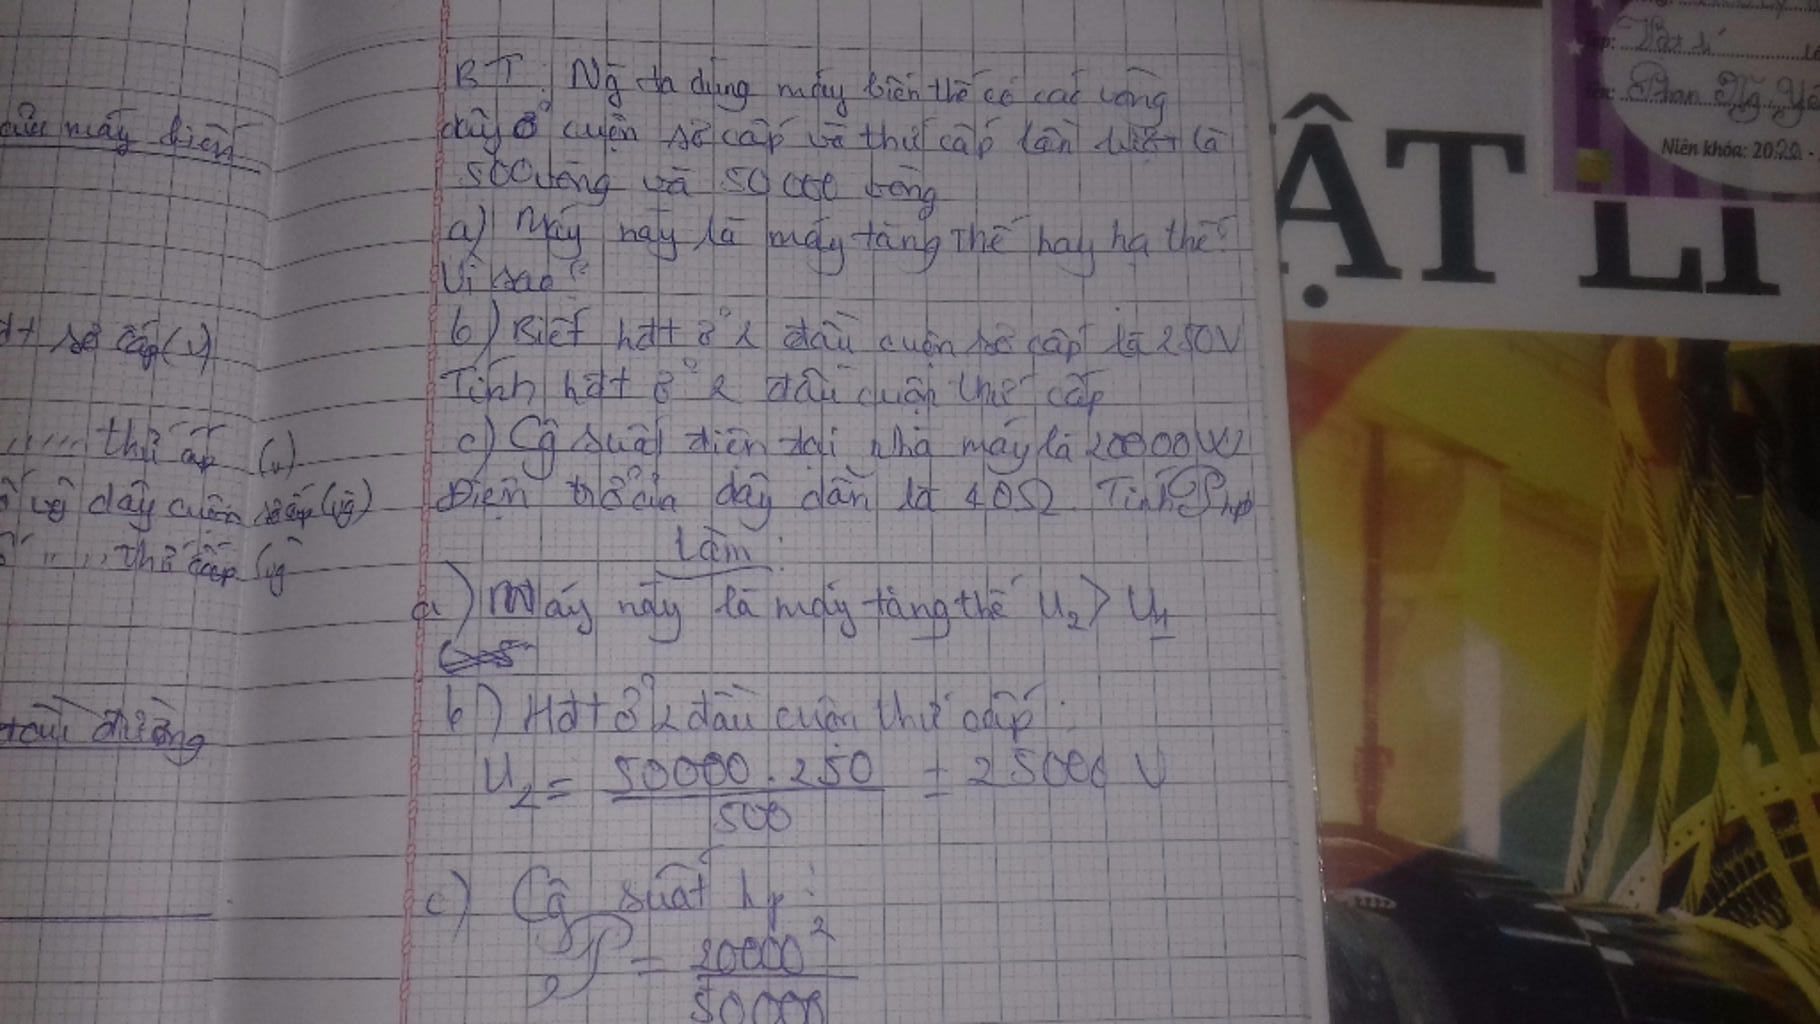 của máy biến
đt sơ cấp (V)
,,,,, thứ cấp (V)
số vg dây cuộn sơ cấp (vg)
số ,, ,, ,, thứ cấp (vg
tải đường
BT: Ng ta dùng máy biến thế có các vòng
dây ở cuộn sơ cấp và thứ cấp lần lượt là
500 vòng và 50 000 vòng
a) Máy này là máy tăng thế hay hạ thế?
Vì sao?
b) Biết hđt ở 2 đầu cuộn sơ cấp là 250V
Tính hđt ở 2 đầu cuộn thứ cấp
c) Cg suất điện tại nhà máy là 20000W
Điện trở của dây dẫn là 40Ω. Tính P hp
Làm:
a) Máy này là máy tăng thế U₂ > U₁
b) Hđt ở 2 đầu cuộn thứ cấp:
U₂ = 50000 . 250 / 500 = 25000 V
c) Cg suất hp:
P = 20000² / 50000
ẬT LÍ
Lớp:
Tên: Phan Ng Yế
Niên khóa: 2020 -